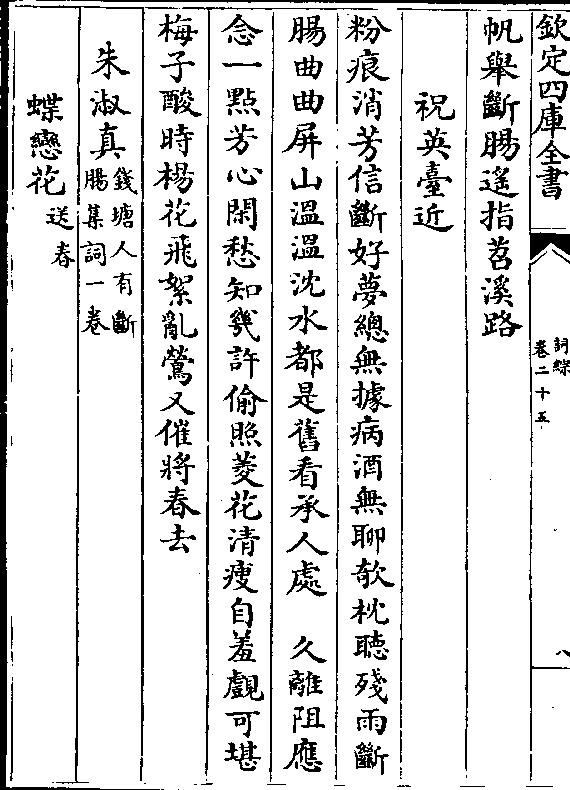 欽定四庫全書
詞綜
卷二十五
八
帆舉斷腸遙指苕溪路
祝英臺近
粉痕消芳信斷好夢總無據病酒無聊欹枕聽殘雨斷
腸曲曲屏山溫溫沈水都是舊看承人處　久離阻應
念一點芳心閑愁知幾許偷照菱花清瘦自羞覷可堪
梅子酸時楊花飛絮亂鶯又催將春去
朱淑真
錢塘人有斷
腸集詞一卷
蝶戀花
送春